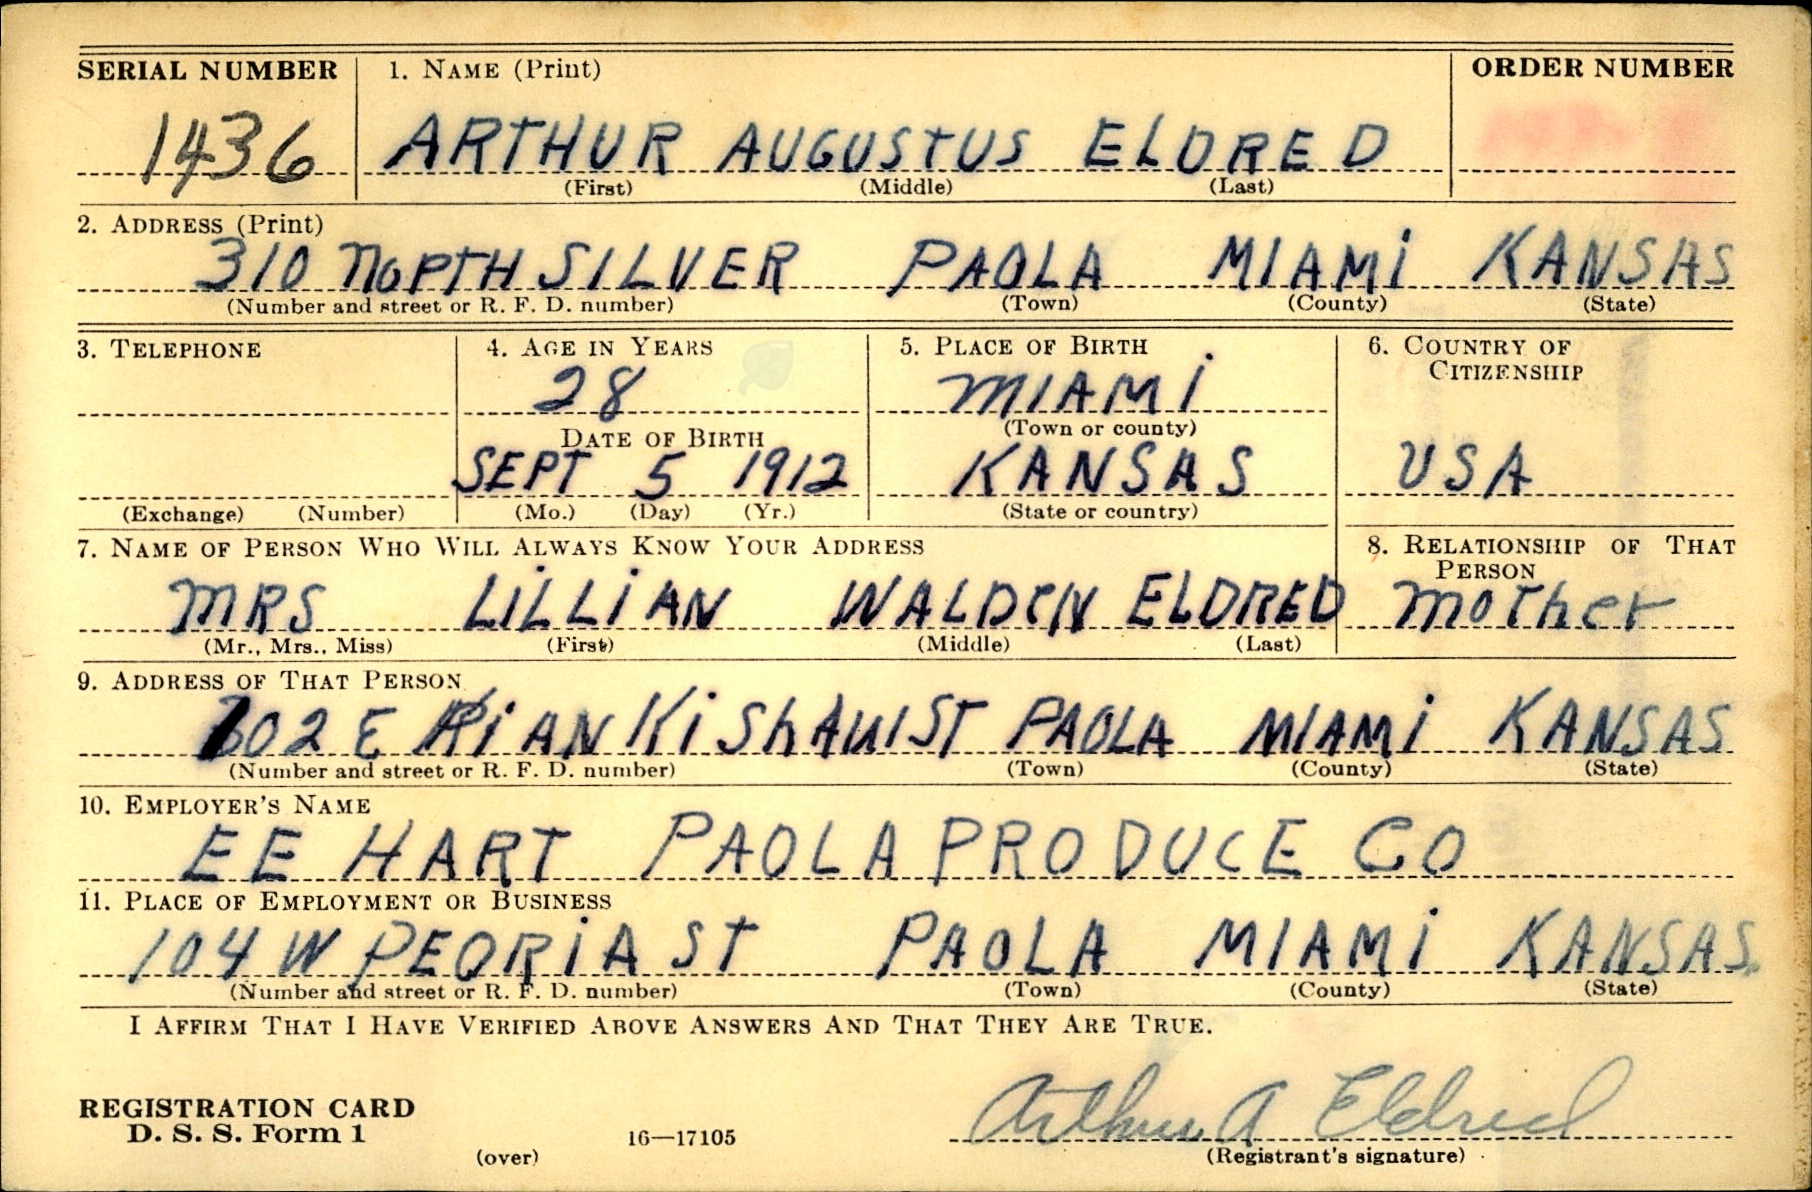 SERIAL NUMBER 1. NAME (Print) ORDER NUMBER
1436 ARTHUR AUGUSTUS ELDRED
(First) (Middle) (Last)
2. ADDRESS (Print)
310 NORTH SILVER PAOLA MIAMI KANSAS
(Number and street or R. F. D. number) (Town) (County) (State)
3. TELEPHONE 4. AGE IN YEARS 5. PLACE OF BIRTH 6. COUNTRY OF CITIZENSHIP
28 MIAMI
DATE OF BIRTH (Town or county)
SEPT 5 1912 KANSAS USA
(Exchange) (Number) (Mo.) (Day) (Yr.) (State or country)
7. NAME OF PERSON WHO WILL ALWAYS KNOW YOUR ADDRESS 8. RELATIONSHIP OF THAT PERSON
MRS LILLIAN WALDEN ELDRED Mother
(Mr., Mrs., Miss) (First) (Middle) (Last)
9. ADDRESS OF THAT PERSON
E ST PAOLA MIAMI KANSAS
(Number and street or R. F. D. number) (Town) (County) (State)
10. EMPLOYER'S NAME
EE HART PAOLA PRODUCE CO
11. PLACE OF EMPLOYMENT OR BUSINESS
104 W PEORIA ST PAOLA MIAMI KANSAS
(Number and street or R. F. D. number) (Town) (County) (State)
I AFFIRM THAT I HAVE VERIFIED ABOVE ANSWERS AND THAT THEY ARE TRUE.
Arthur A Eldred
REGISTRATION CARD
D. S. S. Form 1 16—17105
(over) (Registrant's signature)